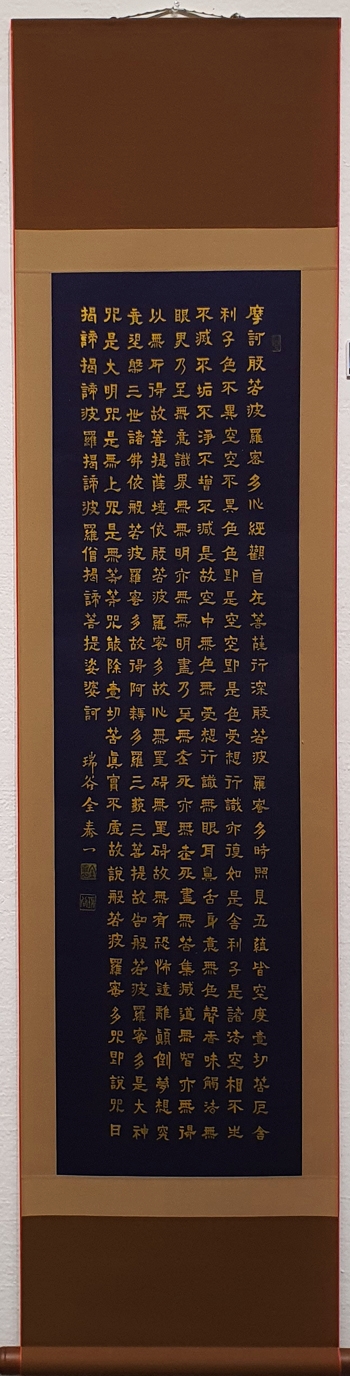 摩訶般若波羅密多心經觀自在菩薩行深般若波羅密多時照見五蘊皆空度壹切苦厄舍
利子色不異空空不異色色卽是空空卽是色受想行識亦復如是舍利子是諸法空相不生
不滅不垢不淨不增不減是故空中無色無受想行識無眼耳鼻舌身意無色聲香味觸法無
眼界乃至無意識界無無明亦無無明盡乃至無老死亦無老死盡無苦集滅道無智亦無得
以無所得故菩提薩埵依般若波羅密多故心無罣碍無罣碍故無有恐怖遠離顚倒夢想究
竟涅槃三世諸佛依般若波羅密多故得阿耨多羅三藐三菩提故知般若波羅密多是大神
呪是大明呪是無上呪是無等等呪能除壹切苦眞實不虛故說般若波羅密多呪卽說呪曰
揭諦揭諦波羅揭諦波羅僧揭諦菩提娑婆訶 瑞谷全泰一